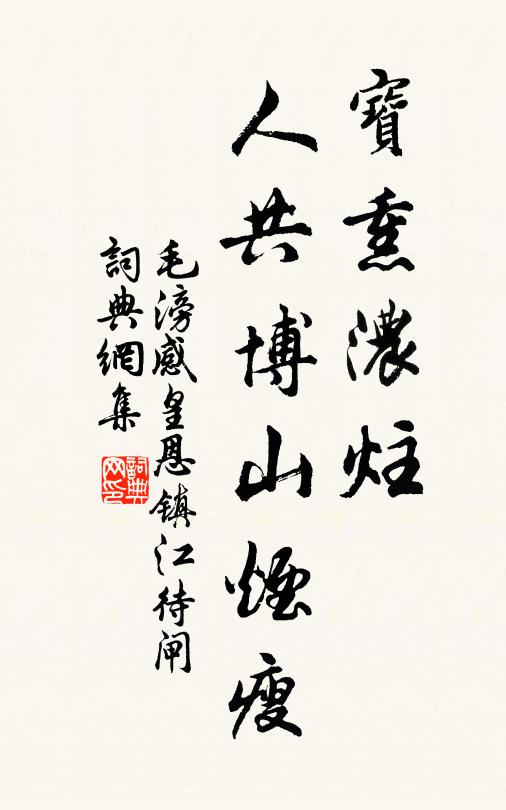 寶熏濃炷
人共博山煙瘦
毛滂感皇恩鎮江待閘
詞典網集
詞典網印